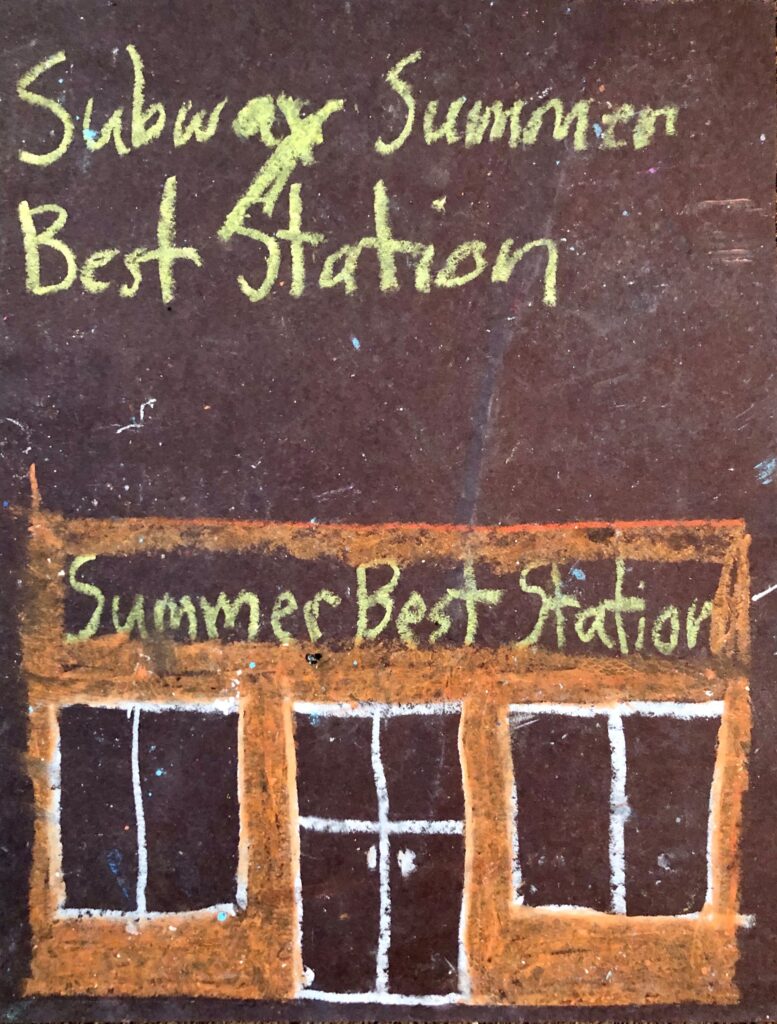 Subway Summer
Best Station
Summer Best Station